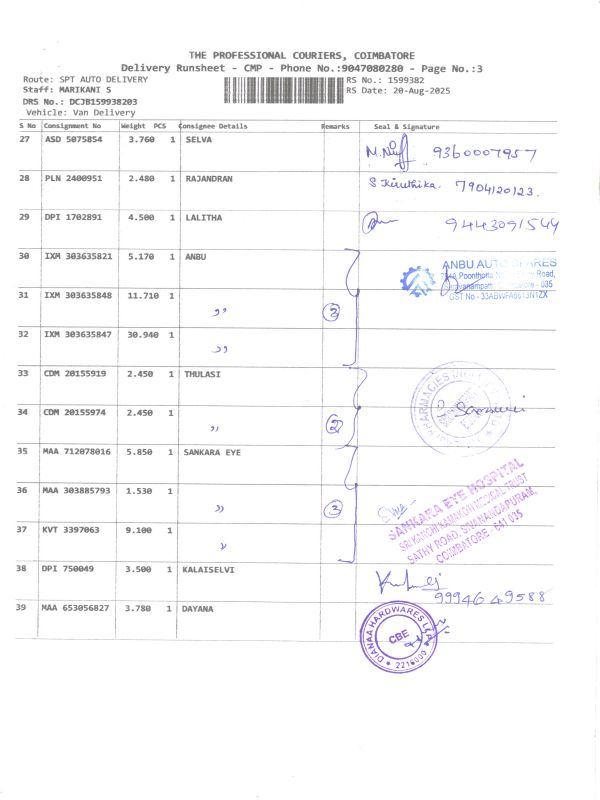 THE PROFESSIONAL COURIERS, COIMBATORE
Delivery Runsheet - CMP - Phone No.:9047080280 - Page No.:3
Route: SPT AUTO DELIVERY RS No.: 1599382
Staff: MARIKANI S RS Date: 20-Aug-2025
DRS No.: DCJB159938203
Vehicle: Van Delivery
S No Consignment No Weight PCS Consignee Details Remarks Seal & Signature
27 ASD 5075854 3.760 1 SELVA 9360007957
28 PLN 2400951 2.480 1 RAJANDRAN S Kiruthika. 7904120123.
29 DPI 1702891 4.500 1 LALITHA 9443091544
30 IXM 303635821 5.170 1 ANBU
ANBU AUTO SPARES
Road,
- 035
GST No - 33ABWFA6613N1ZX
31 IXM 303635848 11.710 1 ,, 3
32 IXM 303635847 30.940 1 ,,
33 CDM 20155919 2.450 1 THULASI
34 CDM 20155974 2.450 1 ,, 2
35 MAA 712078016 5.850 1 SANKARA EYE
36 MAA 303885793 1.530 1 ,, 3
SANKARA EYE HOSPITAL
SRI KANCHI KAMAKOTI MEDICAL TRUST
SATHY ROAD, SIVANANDAPURAM,
COIMBATORE - 641 035
37 KVT 3397063 9.100 1 ,,
38 DPI 750049 3.500 1 KALAISELVI
99946 49588
39 MAA 653056827 3.780 1 DAYANA
DIANAA HARDWARES LLP
CBE
2216000